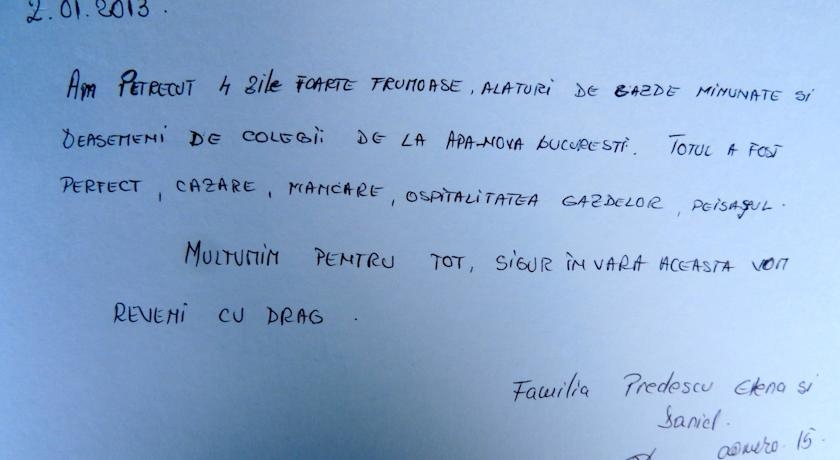 2.01.2013.
AM PETRECUT 4 zile FOARTE FRUMOASE, ALATURI DE GAZDE MINUNATE si
DEASEMENI DE COLEGII DE LA APA-NOVA BUCURESTI. TOTUL A FOST
PERFECT, CAZARE, MANCARE, OSPITALITATEA GAZDELOR, PEISAJUL.
MULTUMIM PENTRU TOT, SIGUR ÎN VARA ACEASTA VOM
REVENI CU DRAG.
Familia Predescu Elena si
Daniel.
camera 15.